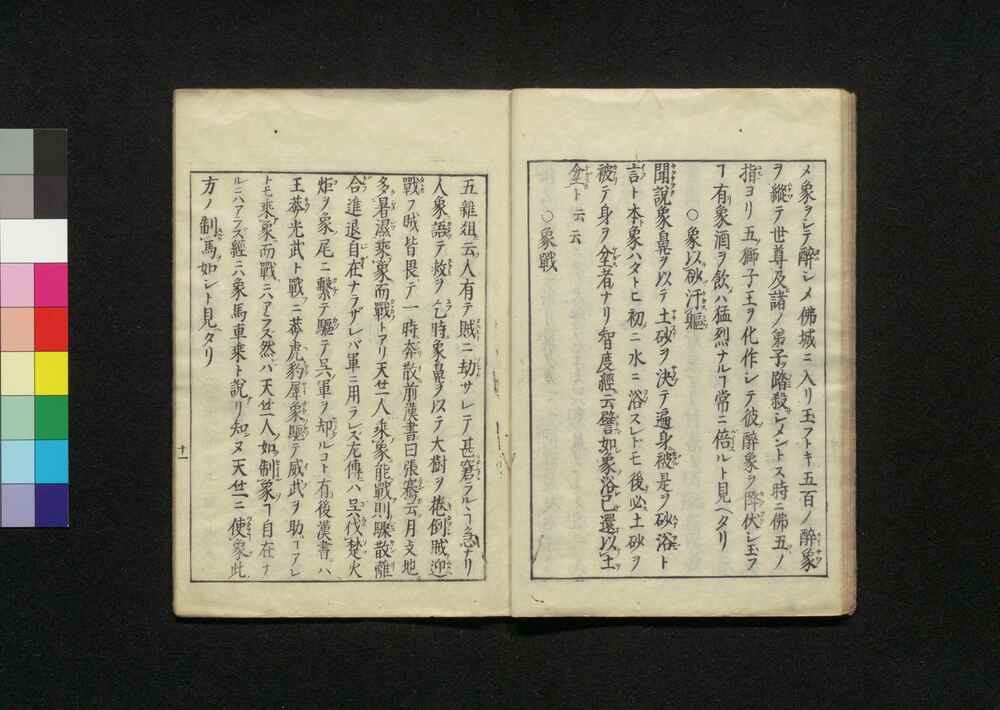 メ象ヲシテ醉シメ佛城ニ入リ玉フトキ五百ノ醉象
ヲ縱テ世尊及諸ノ弟子ヲ踏殺シメントス時ニ佛五ノ
指ヨリ五獅子王ヲ化作シテ彼醉象ヲ降伏シ玉フ
ヿ有象酒ヲ飲ハ猛烈ナルヿ常ニ倍ルト見ヘタリ
○象以砂汙軀
聞說象鼻ヲ以テ土砂ヲ決テ遍身被是ヲ砂浴ト
言ト本象ハタトヒ初ニ水ニ浴スレドモ後必土砂ヲ
被テ身ヲ坌者ナリ智度經云譬如象浴已還以土
坌ト云云
○象戰
五雜俎云人有テ賊ニ劫サレテ甚窘ラルヽヿ急ナリ
人象語テ救ヲ乞時象鼻ヲ以テ大樹ヲ捲倒賊迎
戰フ賊皆畏テ一時奔散前漢書曰張騫云月支地
多暑濕乘象而戰トアリ天竺人乘象能戰則驟散離
合進退自在ナラザレバ軍ニ用ラレズ左傳ハ呉伐楚火
炬ヲ象尾ニ繫テ驅テ呉軍ヲ却ルコト有後漢書ハ
王莽光武ト戰ニ莽虎豹犀象驅テ威武ヲ助ヿアレ
トモ乘象而戰ニハアラス然バ天竺人如制象ヿ自在ナ
ルニハアラズ經ニ六象馬車乘ト說リ知ヌ天竺ニ使象此
方ノ制馬如シト見タリ
十一